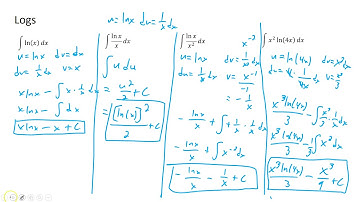 Logs
u = lnx du = 1/x dx
∫ ln(x) dx
u = lnx dv = dx
du = 1/x dx v = x
x lnx - ∫ x · 1/x dx
x lnx - ∫ dx
x lnx - x + C
∫ lnx/x dx
∫ u du
= u²/2 + C
= [ln(x)]²/2 + C
∫ lnx/x² dx
x⁻²
u = lnx dv = 1/x² dx
du = 1/x dx v = x⁻¹/-1
= -1/x
- lnx/x + ∫ + 1/x · 1/x dx
- lnx/x + ∫ x⁻² dx
- lnx/x - 1/x + C
∫ x² ln(4x) dx
u = ln(4x) dv = x² dx
du = 4 · 1/4x dx v = x³/3
x³ ln(4x)/3 - ∫ x³/3 · 1/x dx
x³ ln(4x)/3 - 1/3 ∫ x² dx
x³ ln(4x)/3 - x³/9 + C